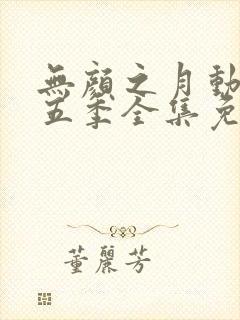 無顏之月動
五季全集免
董麗芳